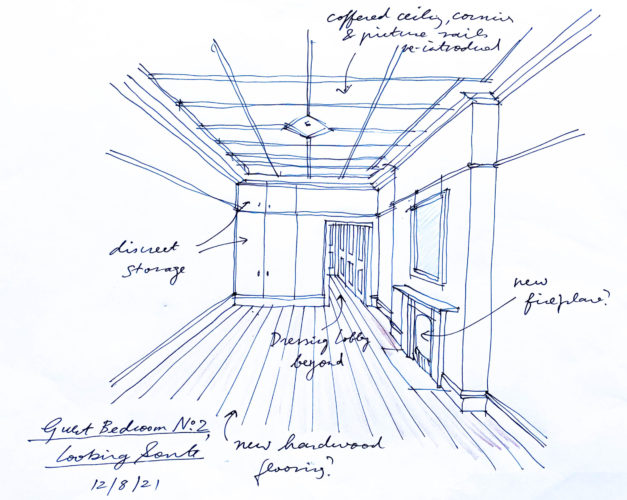 coffered ceiling, cornices
& picture rails
re-introduced
discreet
storage
new
fireplace?
Dressing lobby
beyond
new hardwood
flooring?
Guest Bedroom No.2,
Looking South
12/8/21